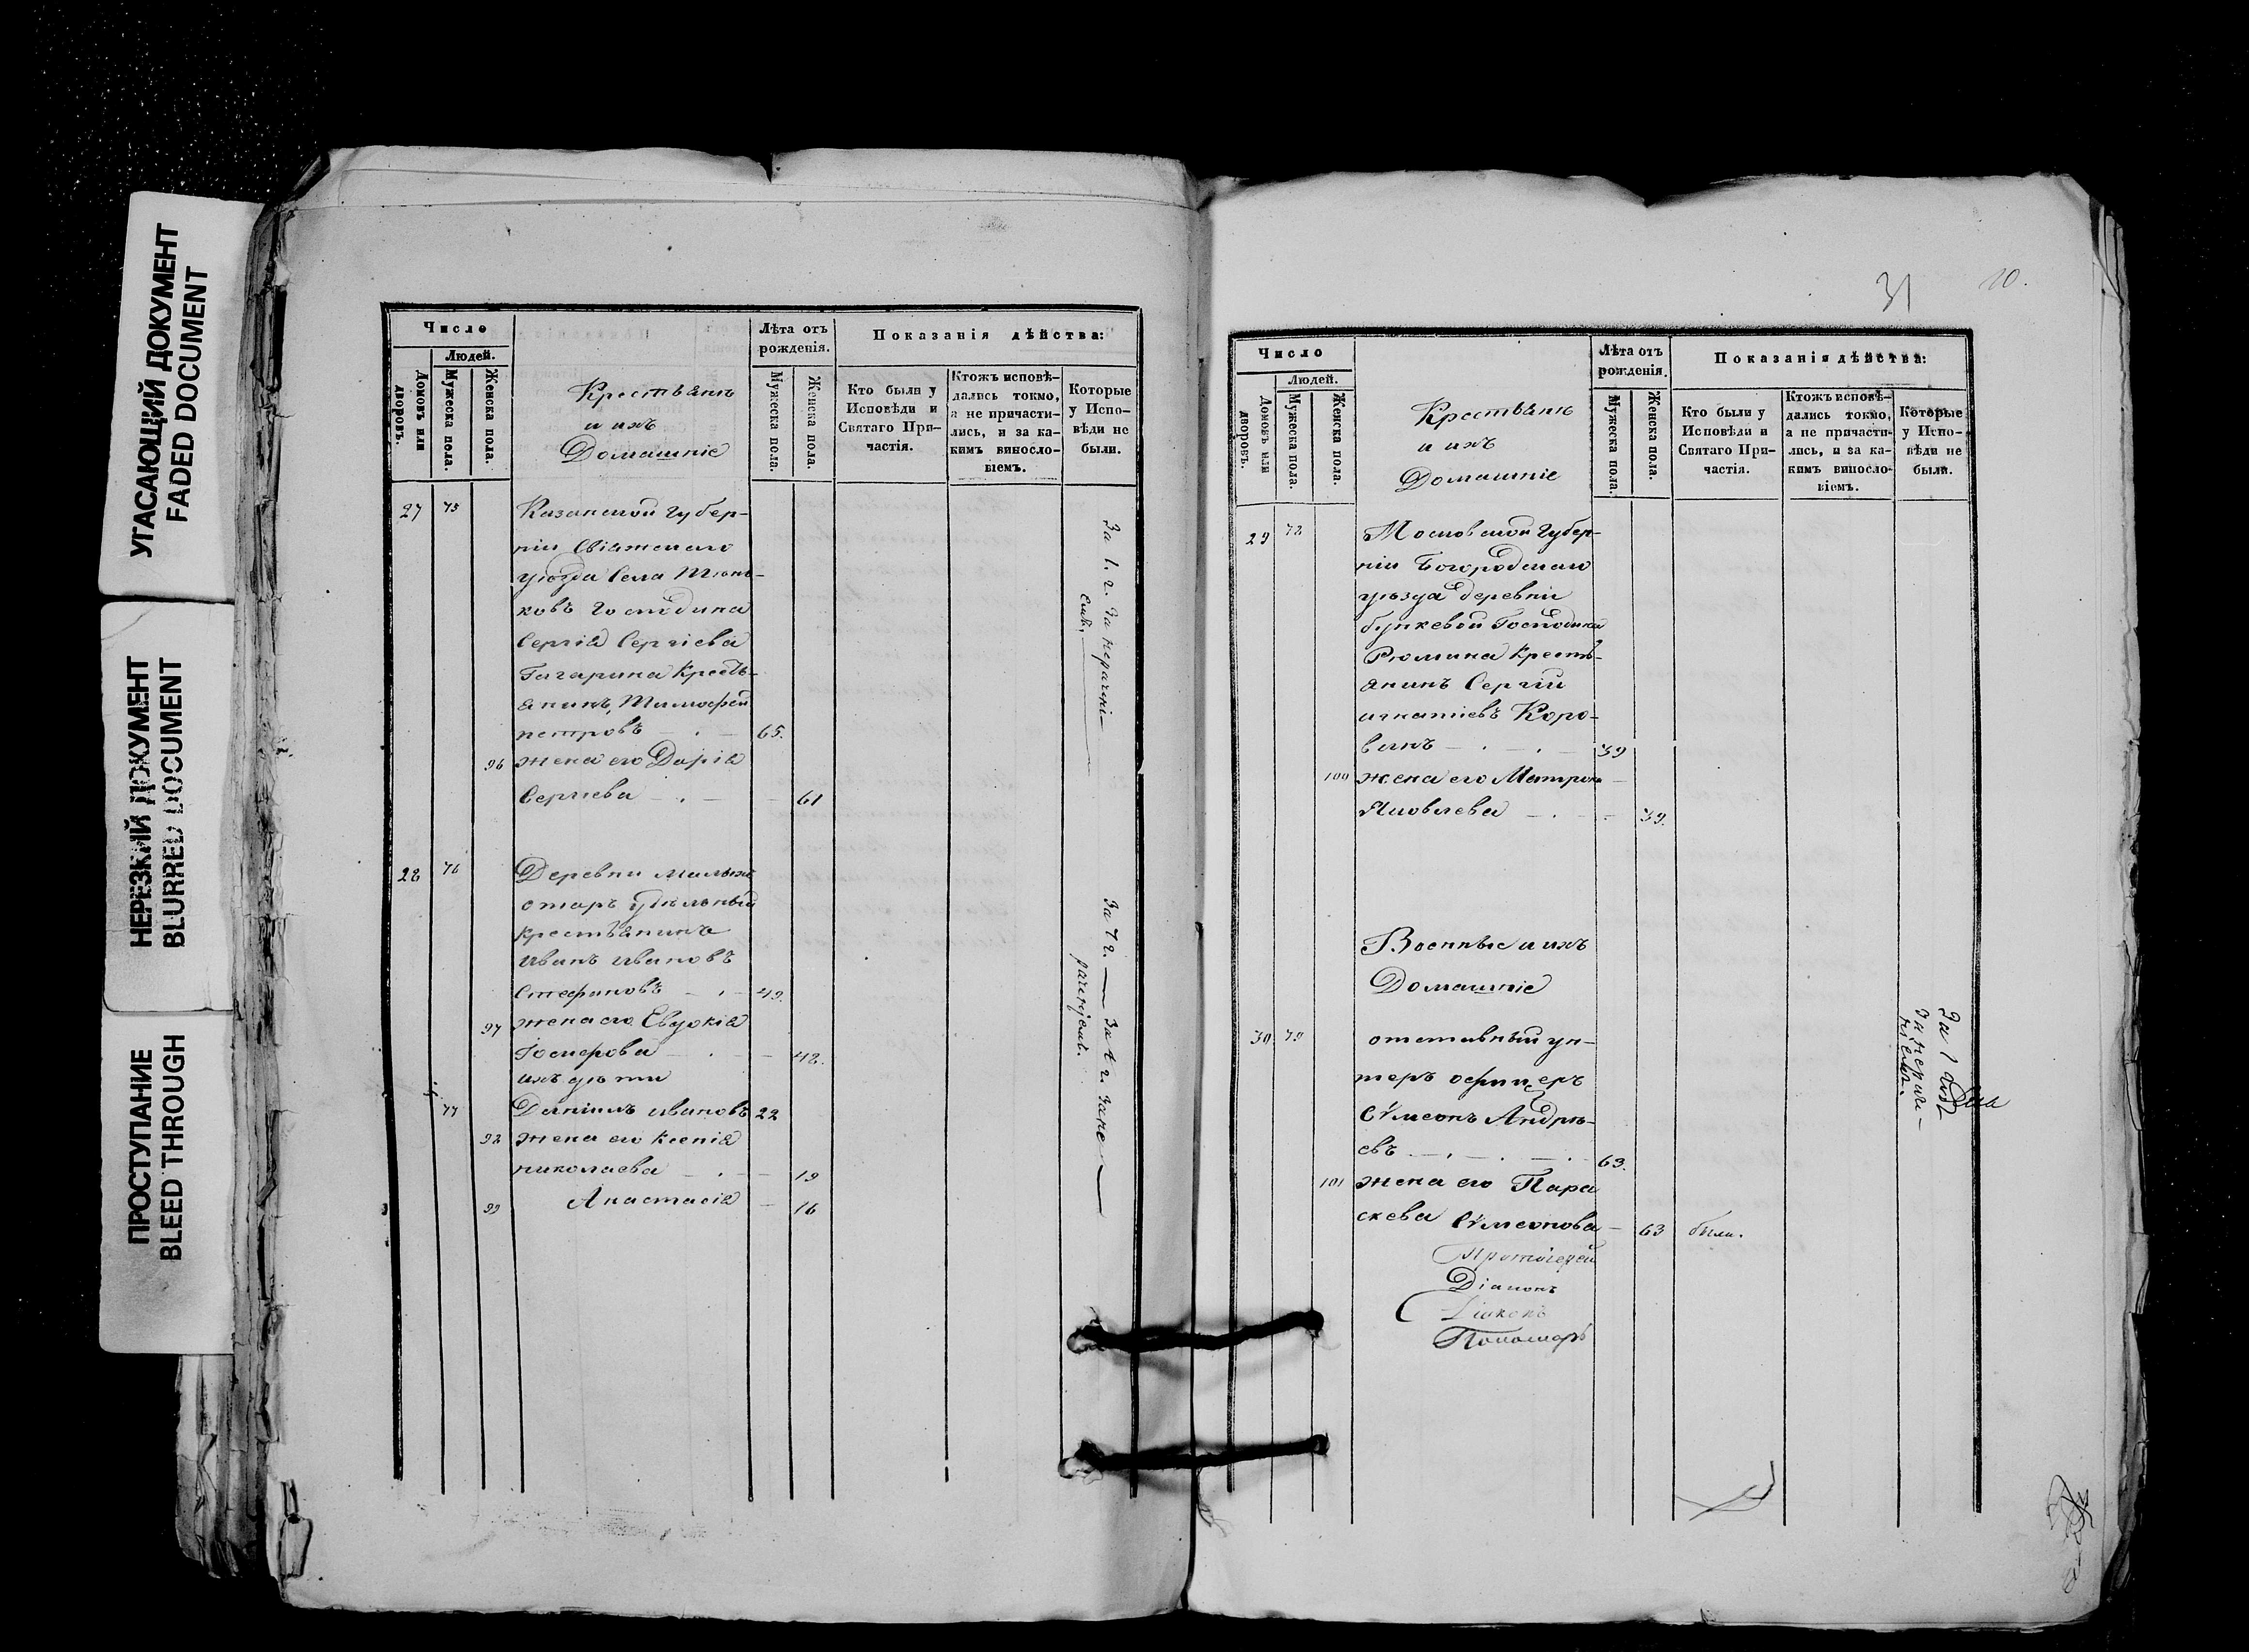 УГАСАЮЩИЙ ДОКУМЕНТ
FADED DOCUMENT
НЕРЕЗКИЙ ДОКУМЕНТ
BLURRED DOCUMENT
ПРОСТУПАНИЕ
BLEED THROUGH
Число
Людей.
Домовъ или дворовъ.
Мужеска пола.
Женска пола.
Крестьянъ
и ихъ
Домашніе
Лѣта отъ рожденія.
Мужеска пола.
Женска пола.
Показанія дѣйства:
Кто были у Исповѣди и Святаго Причастія.
Ктожъ исповѣдались токмо, а не причастились, и за какимъ винословіемъ.
Которые у Исповѣди не были.
27 75 Казанской Губер-
ніи Свіяжскаго
уѣзда Села Тюн-
ковъ Господина
Сергія Сергіева
Гагарина Кресть-
янинъ, Тимофей
петровъ 65.
96 жена его Дарія
Сергіева 61
За 1. г. За нераче-
28 76 Деревни
удѣльный
крестьянинъ
Иванъ Ивановъ
Стефановъ 49.
97 жена его Евдокія
48.
ихъ дѣти
77 Даніилъ Ивановъ 22
98 жена его Ксенія
николаева 19
99 Анастасія 16
31 10.
Число
Людей.
Домовъ или дворовъ.
Мужеска пола.
Женска пола.
Крестьянъ
и ихъ
Домашніе
Лѣта отъ рожденія.
Мужеска пола.
Женска пола.
Показанія дѣйства:
Кто были у Исповѣди и Святаго Причастія.
Ктожъ исповѣдались токмо, а не причастились, и за какимъ винословіемъ.
Которые у Исповѣди не были.
29 78 Московской Губер-
ніи Богородскаго
уѣзда деревни
Господина
Рюмина кресть-
янинъ Сергій
игнатіевъ Коро-
винъ 39
100 жена его Матрона
Яковлева 39.
Военные и ихъ
Домашніе
30 79 отставный ун-
теръ офицеръ
Сѵмеонъ Андрѣ-
евъ 63.
За 1 годъ
101 жена его Пара
скева Сѵмеонова 63 были.
Протоіерей
Діаконъ
Діаконъ
Пономарь